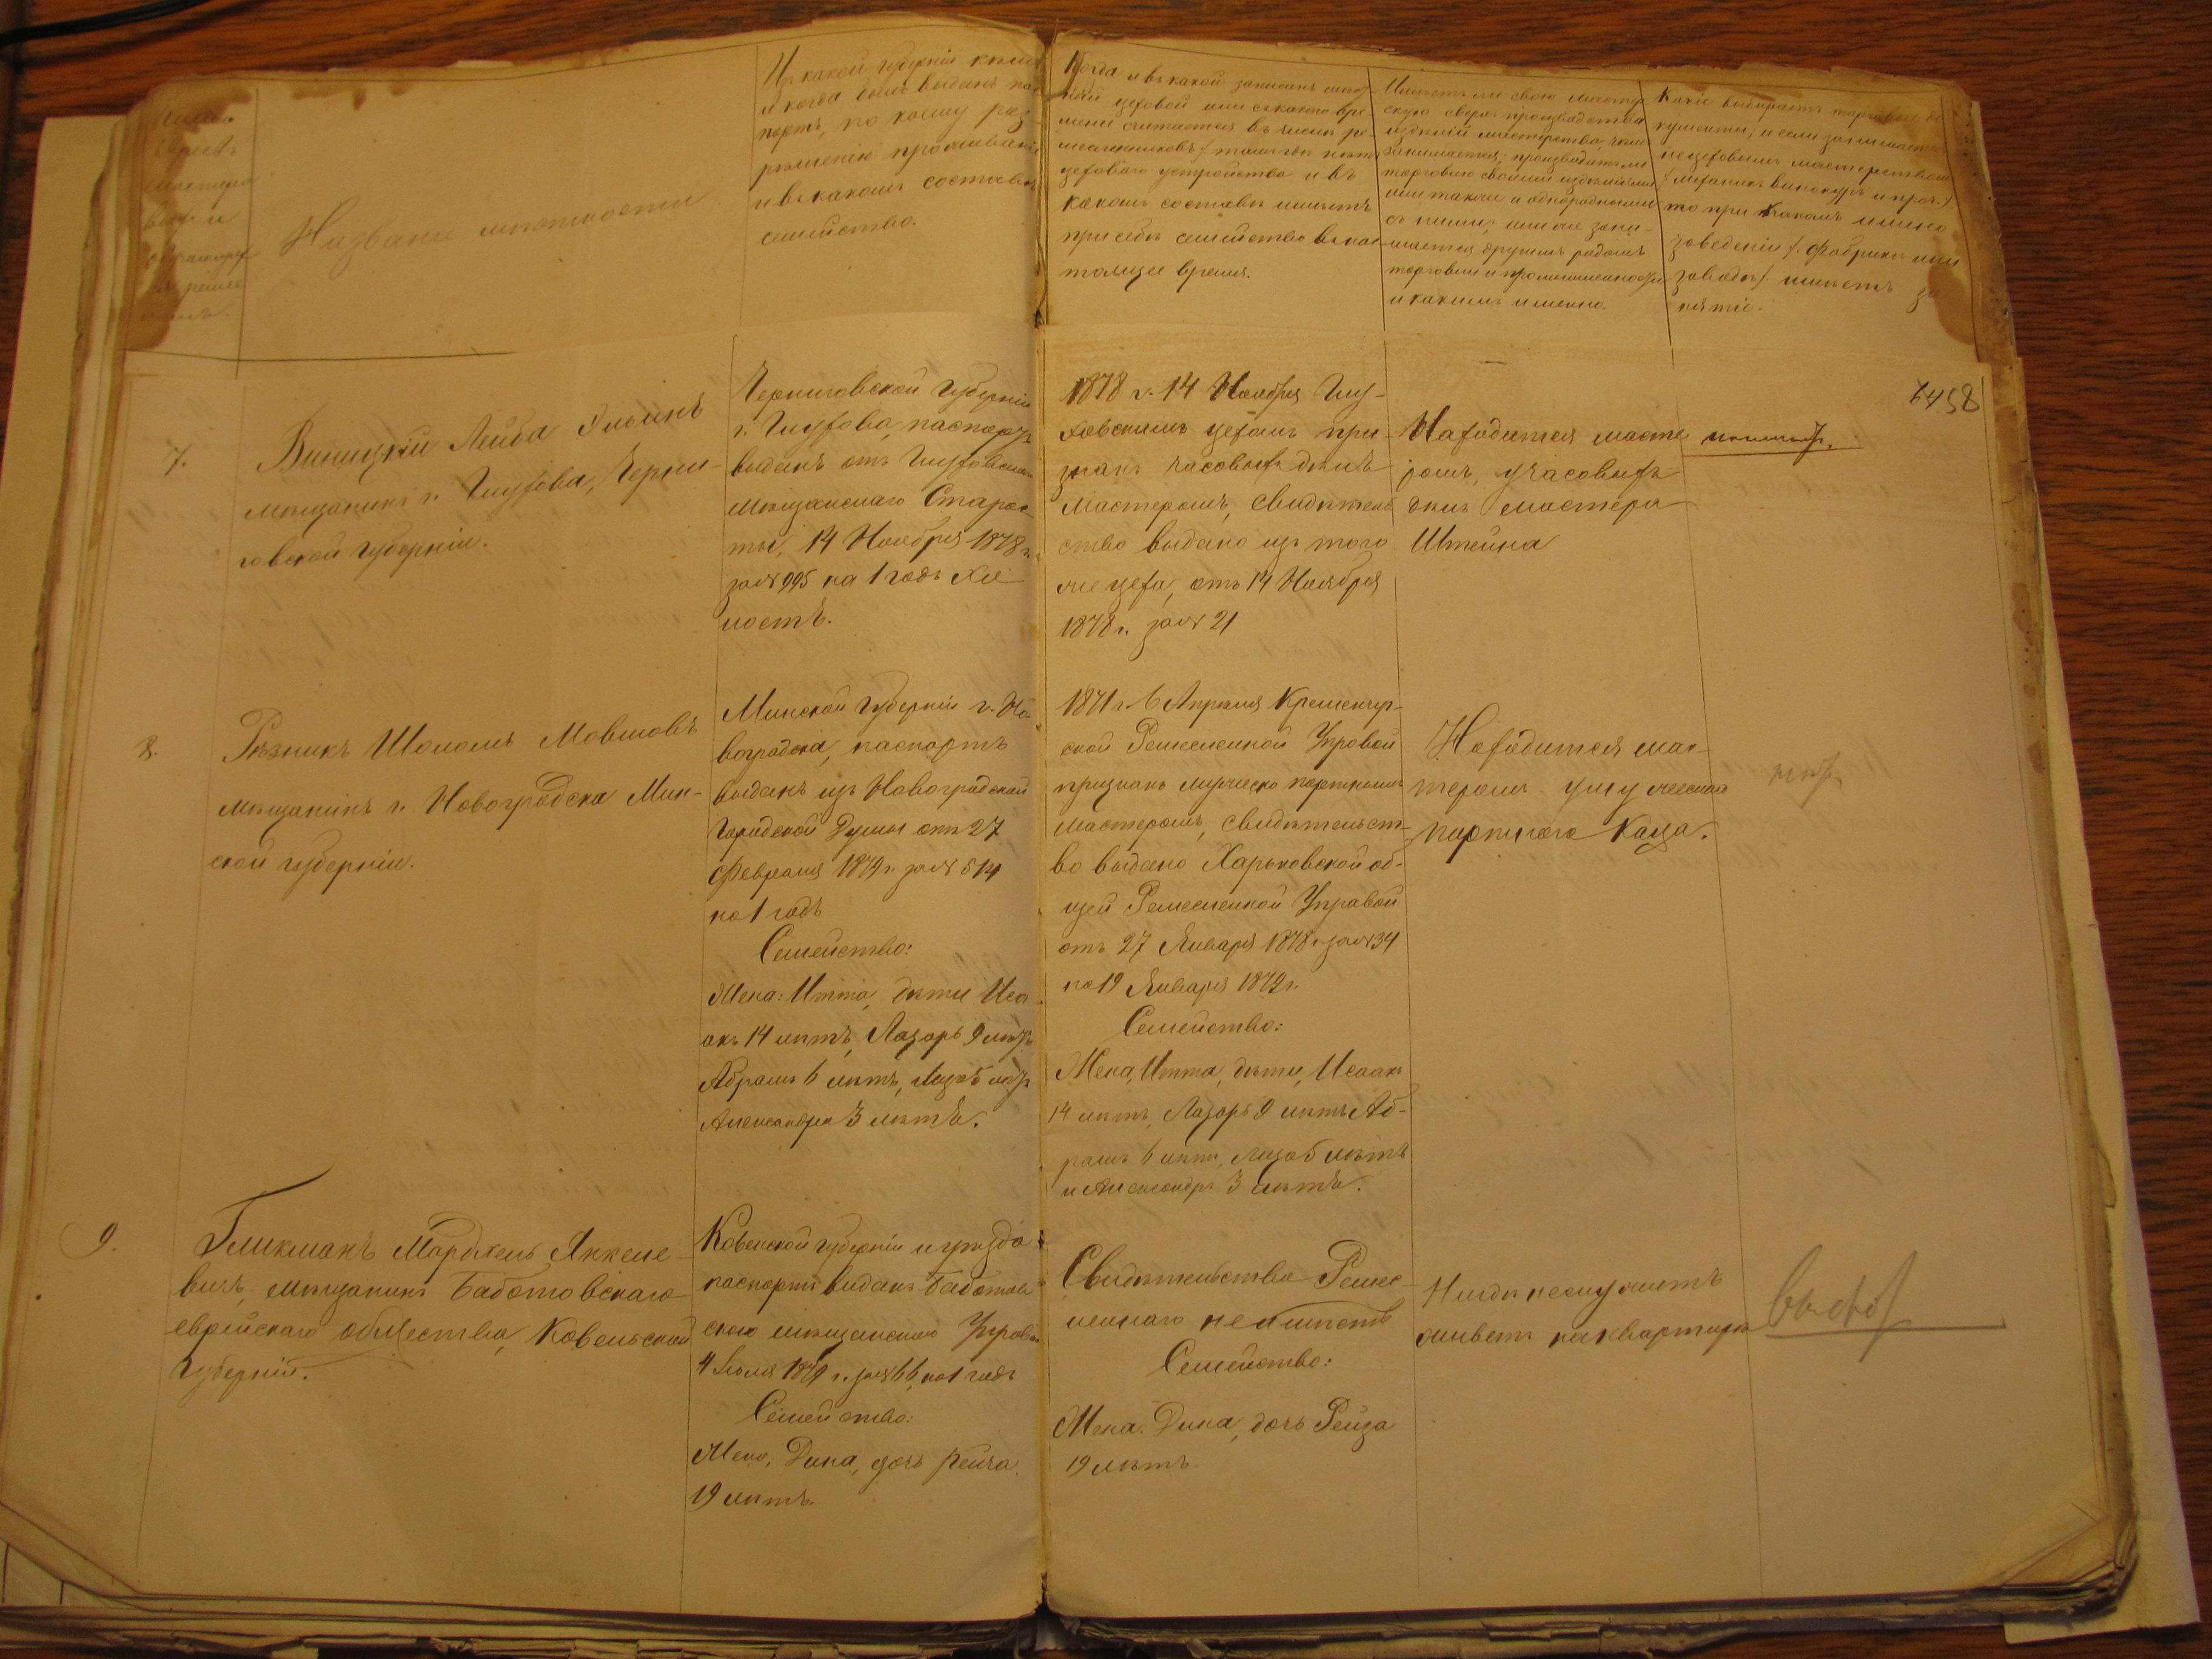 Названіе мѣстности
Изъ какой губерніи кѣмъ
и когда былъ выданъ пас-
портъ, по коему раз-
рѣшенію проживаніе
и въ какомъ составѣ
семейство.
Когда и въ какой записанъ мѣст-
ный цеховой или съ какого вре-
мени считается въ числѣ ре-
месленниковъ / тамъ гдѣ нѣтъ
цеховаго устройства и въ
какомъ составѣ имѣетъ
при себѣ семейство въ нас-
тоящее время.
Имѣетъ ли свою мастер-
скую своего производства
издѣлій мастерства, чѣмъ
занимается, производитъ ли
торговлю своими издѣліями
или также и однородными
съ ними, или же зани-
мается другимъ родомъ
торговли и промышленности
и какимъ именно.
Какіе выбираетъ торговые до-
кументы, и если занимается
нецеховымъ мастерствомъ
/ механикъ винокуръ и проч. /
то при какомъ именно
заведеніи /. фабрики или
завода / имѣетъ за
нятіе.
458
7.
Виницкій Лейба Ельинъ
мѣщанинъ г. Глухова, Черни-
говской губерніи.
Черниговской Губерніи
г. Глухова, паспортъ
выданъ отъ Глуховскаго
Мѣщанскаго Старос-
ты, 14 Ноября 1878 г.
за № 995 на 1 годъ Хо
лостъ.
1878 г. 14 Ноября Глу-
ховскимъ цехомъ при-
знанъ часовыхъ дѣлъ
Мастеромъ, свидѣтель
ство выдано изъ того
же цеха, отъ 14 Ноября
1878 г. за № 21
Находится масте
ромъ, у часовыхъ
дѣлъ мастера
Штейна
8.
Рѣзникъ Шоломъ Мовшовъ
мѣщанинъ г. Новоградска Мин-
ской губерніи.
Минской Губерніи г. Но-
воградска, паспортъ
выданъ изъ Новоградской
Городской Думы отъ 27
Февраля 1879 г. за № 514
на 1 годъ
Семейство:
Жена: Итта, дѣти Иса-
акъ 14 лѣтъ, Лазарь 9 лѣтъ
Абрамъ 6 лѣтъ, Лиза 5 лѣтъ
Александра 3 лѣтъ.
1871 г. 6 Апрѣля Кременчуг-
ской Ремесленной Управой
признанъ мужеско портнымъ
мастеромъ, свидѣтельст-
во выдано Харьковской об-
щей Ремесленной Управой
отъ 27 Января 1878 г. за № 34
по 19 Января 1879 г.
Семейство:
Жена, Итта, дѣти, Исаакъ
14 лѣтъ, Лазарь 9 лѣтъ Аб-
рамъ 6 лѣтъ, Лиза 5 лѣтъ
и Александръ 3 лѣтъ.
Находится мас-
теромъ у мужескаго
портного Каца.
9.
Гликманъ Мордхель Янкеле-
вичъ, мѣщанинъ Бабтовскаго
еврейскаго общества, Ковельской
Губерніи.
Ковенской губерніи и уѣзда
паспортъ выданъ Бабтов-
скою мѣщанскою Управою
4 Іюля 1879 г. за № 66, на 1 годъ
Семейство:
Жена, Дина, дочь Рейза
19 лѣтъ.
Свидѣтельства Ремес-
леннаго не имѣетъ
Семейство:
Жена. Дина, дочь Рейза
19 лѣтъ.
Нигдѣ не служитъ
живетъ на квартирѣ